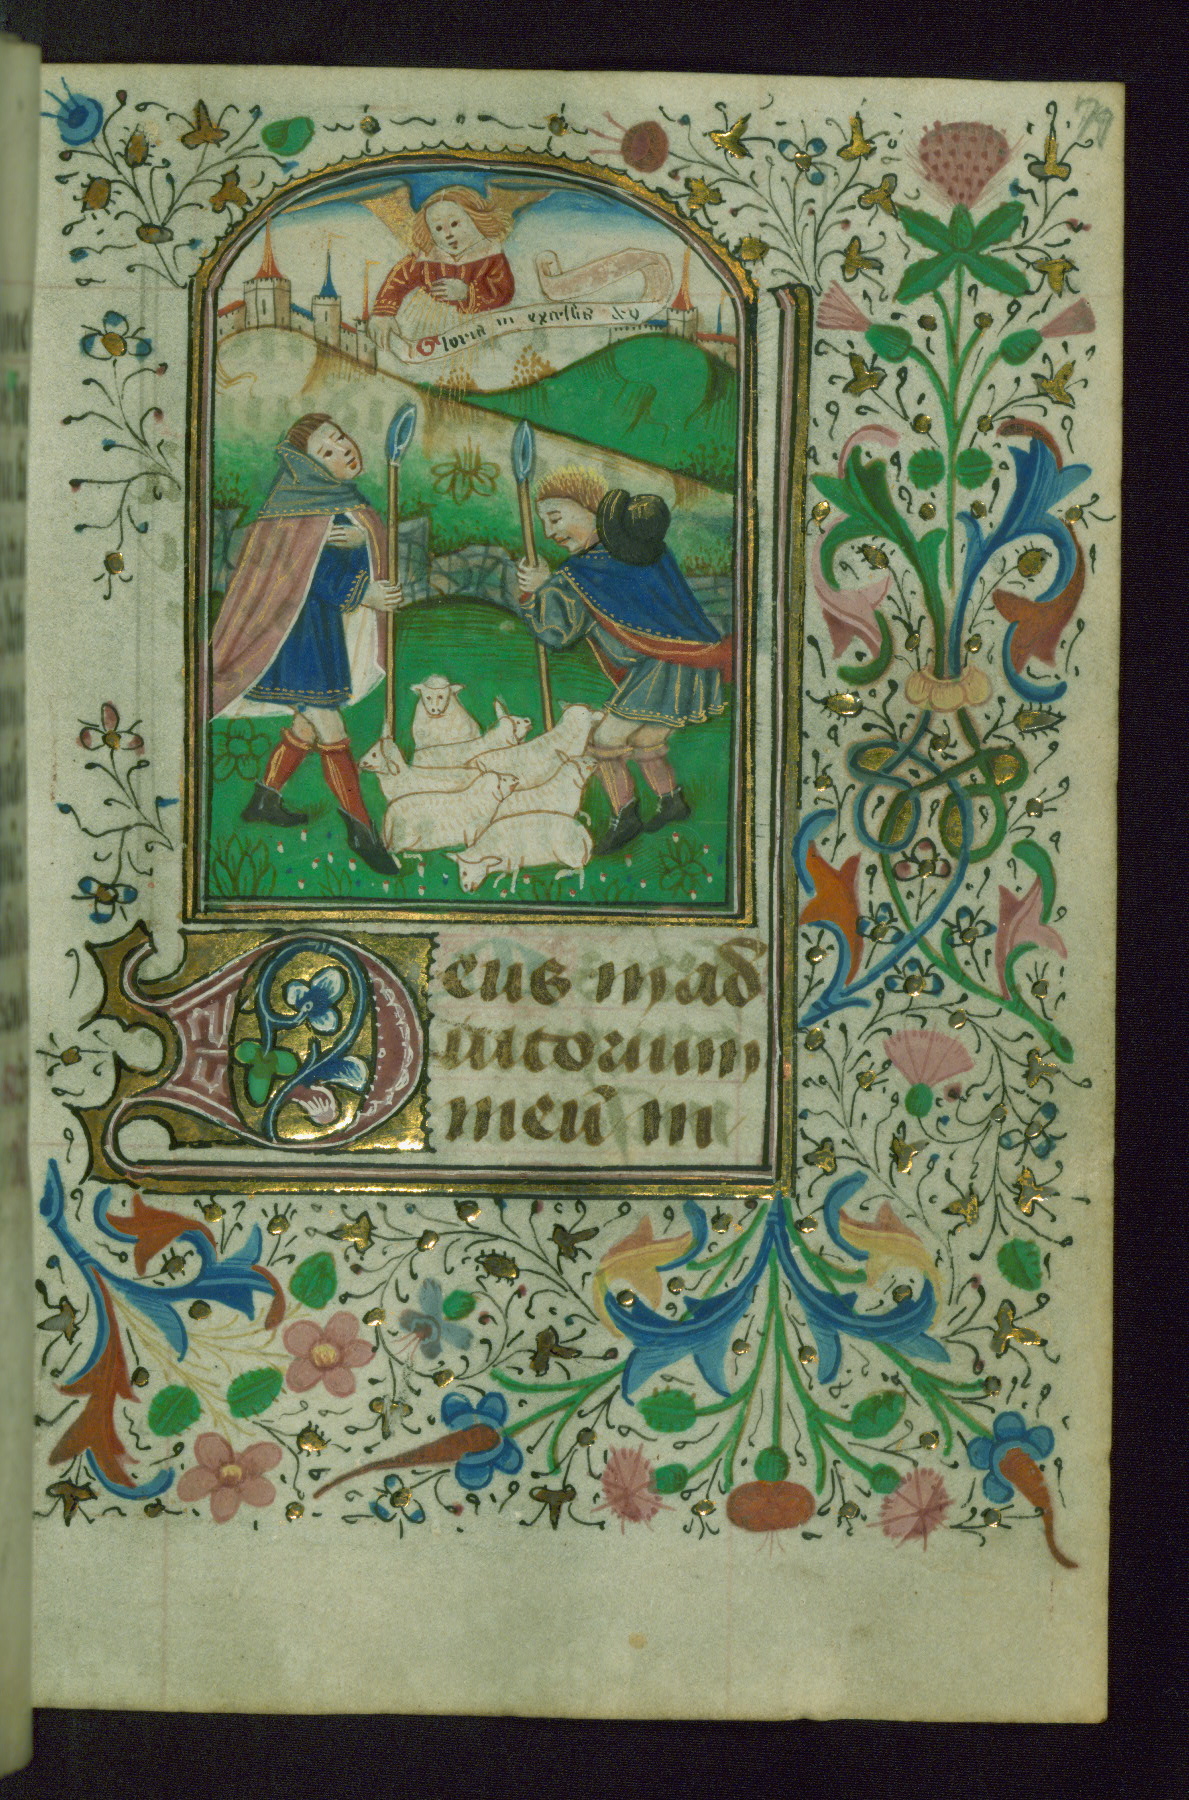 79
Gloria in excelsis deo
Deus in ad
iutorium
meū in